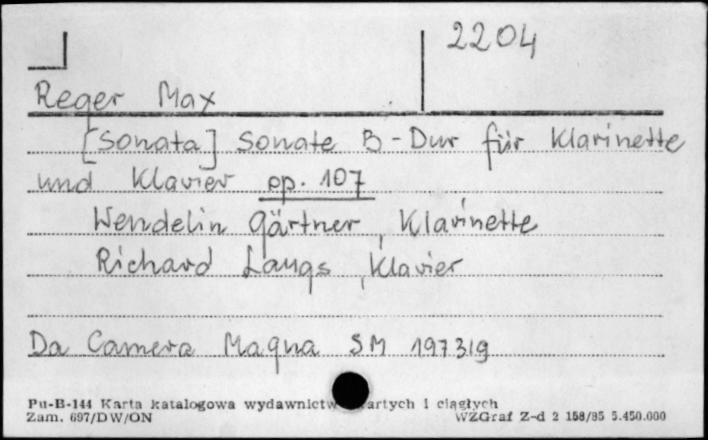 2204
Reger Max
[Sonata] Sonate B-Dur für Klarinette
und Klavier op. 107
Wendelin Gärtner, Klarinette
Richard Laugs, Klavier
Da Camera Magna SM 197319
Pu-B-144 Karta katalogowa wydawnictw zwartych i ciągłych
Zam. 697/DW/ON WZGraf Z-d 2 158/85 5.450.000